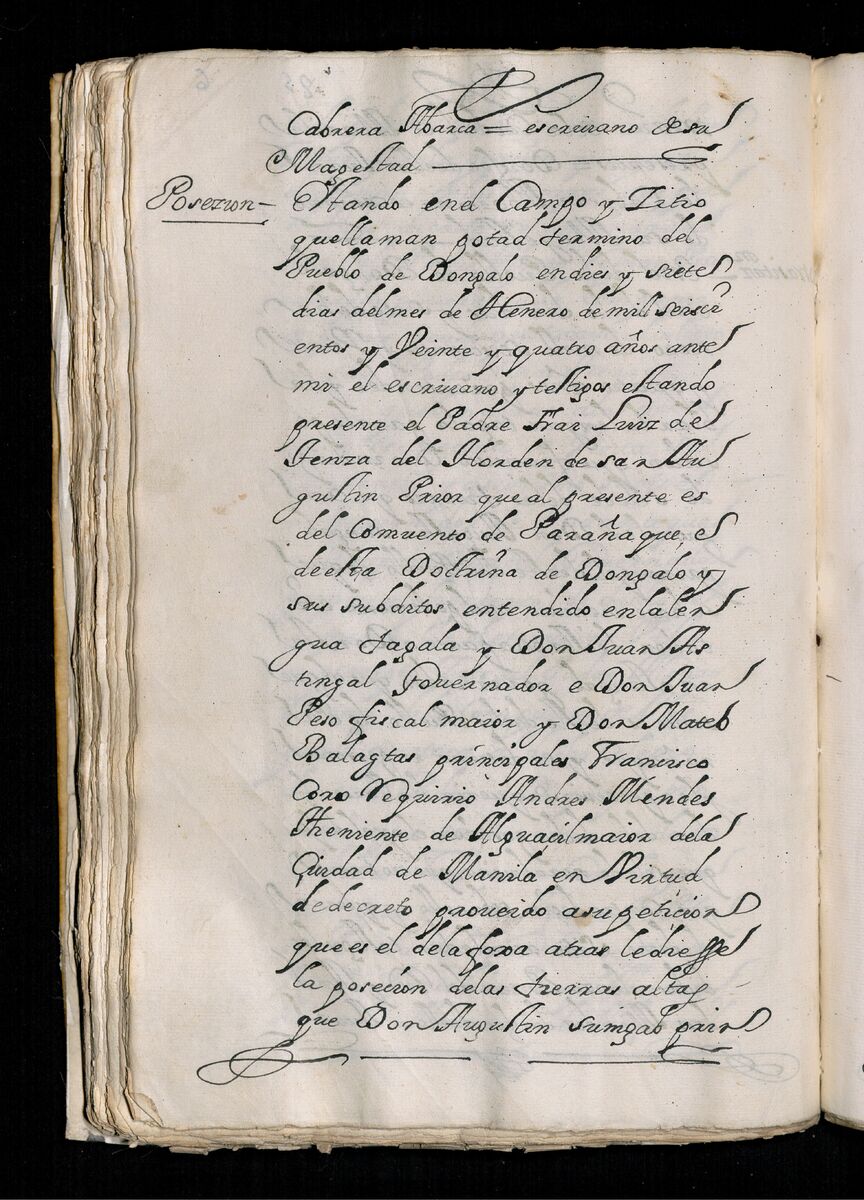 Cabrera Abarca = escriuano de su
Magestad
Posezion - Estando enel Campo y Zitio
quellaman potad termino del
Pueblo de Dongalo endies y siete
dias delmes de Henero de mill seisci
entos y Veinte y quatro años ante
mi el escriuano y testigos estando
presente el Padre Frai Luiz de
del Horden de san Au
gustin Prior que al presente es
del Comuento de Parañaque, e
deesta Doctrina de Dongalo y
sus subditos entendido enlalen
gua tagala y Don Juan As
tingal Gouernador e Don Juan
Peso fiscal maior y Don Mateo
Balagtas principales Francisco
Coro Requirio Andres Mendes
Theniente de Alguacilmaior dela
Ciudad de Manila en Virtud
de decreto proueido asu peticion
que es el dela foxa atras lediesse
la posecion delas tierras altas
que Don Augustin sumgab prin